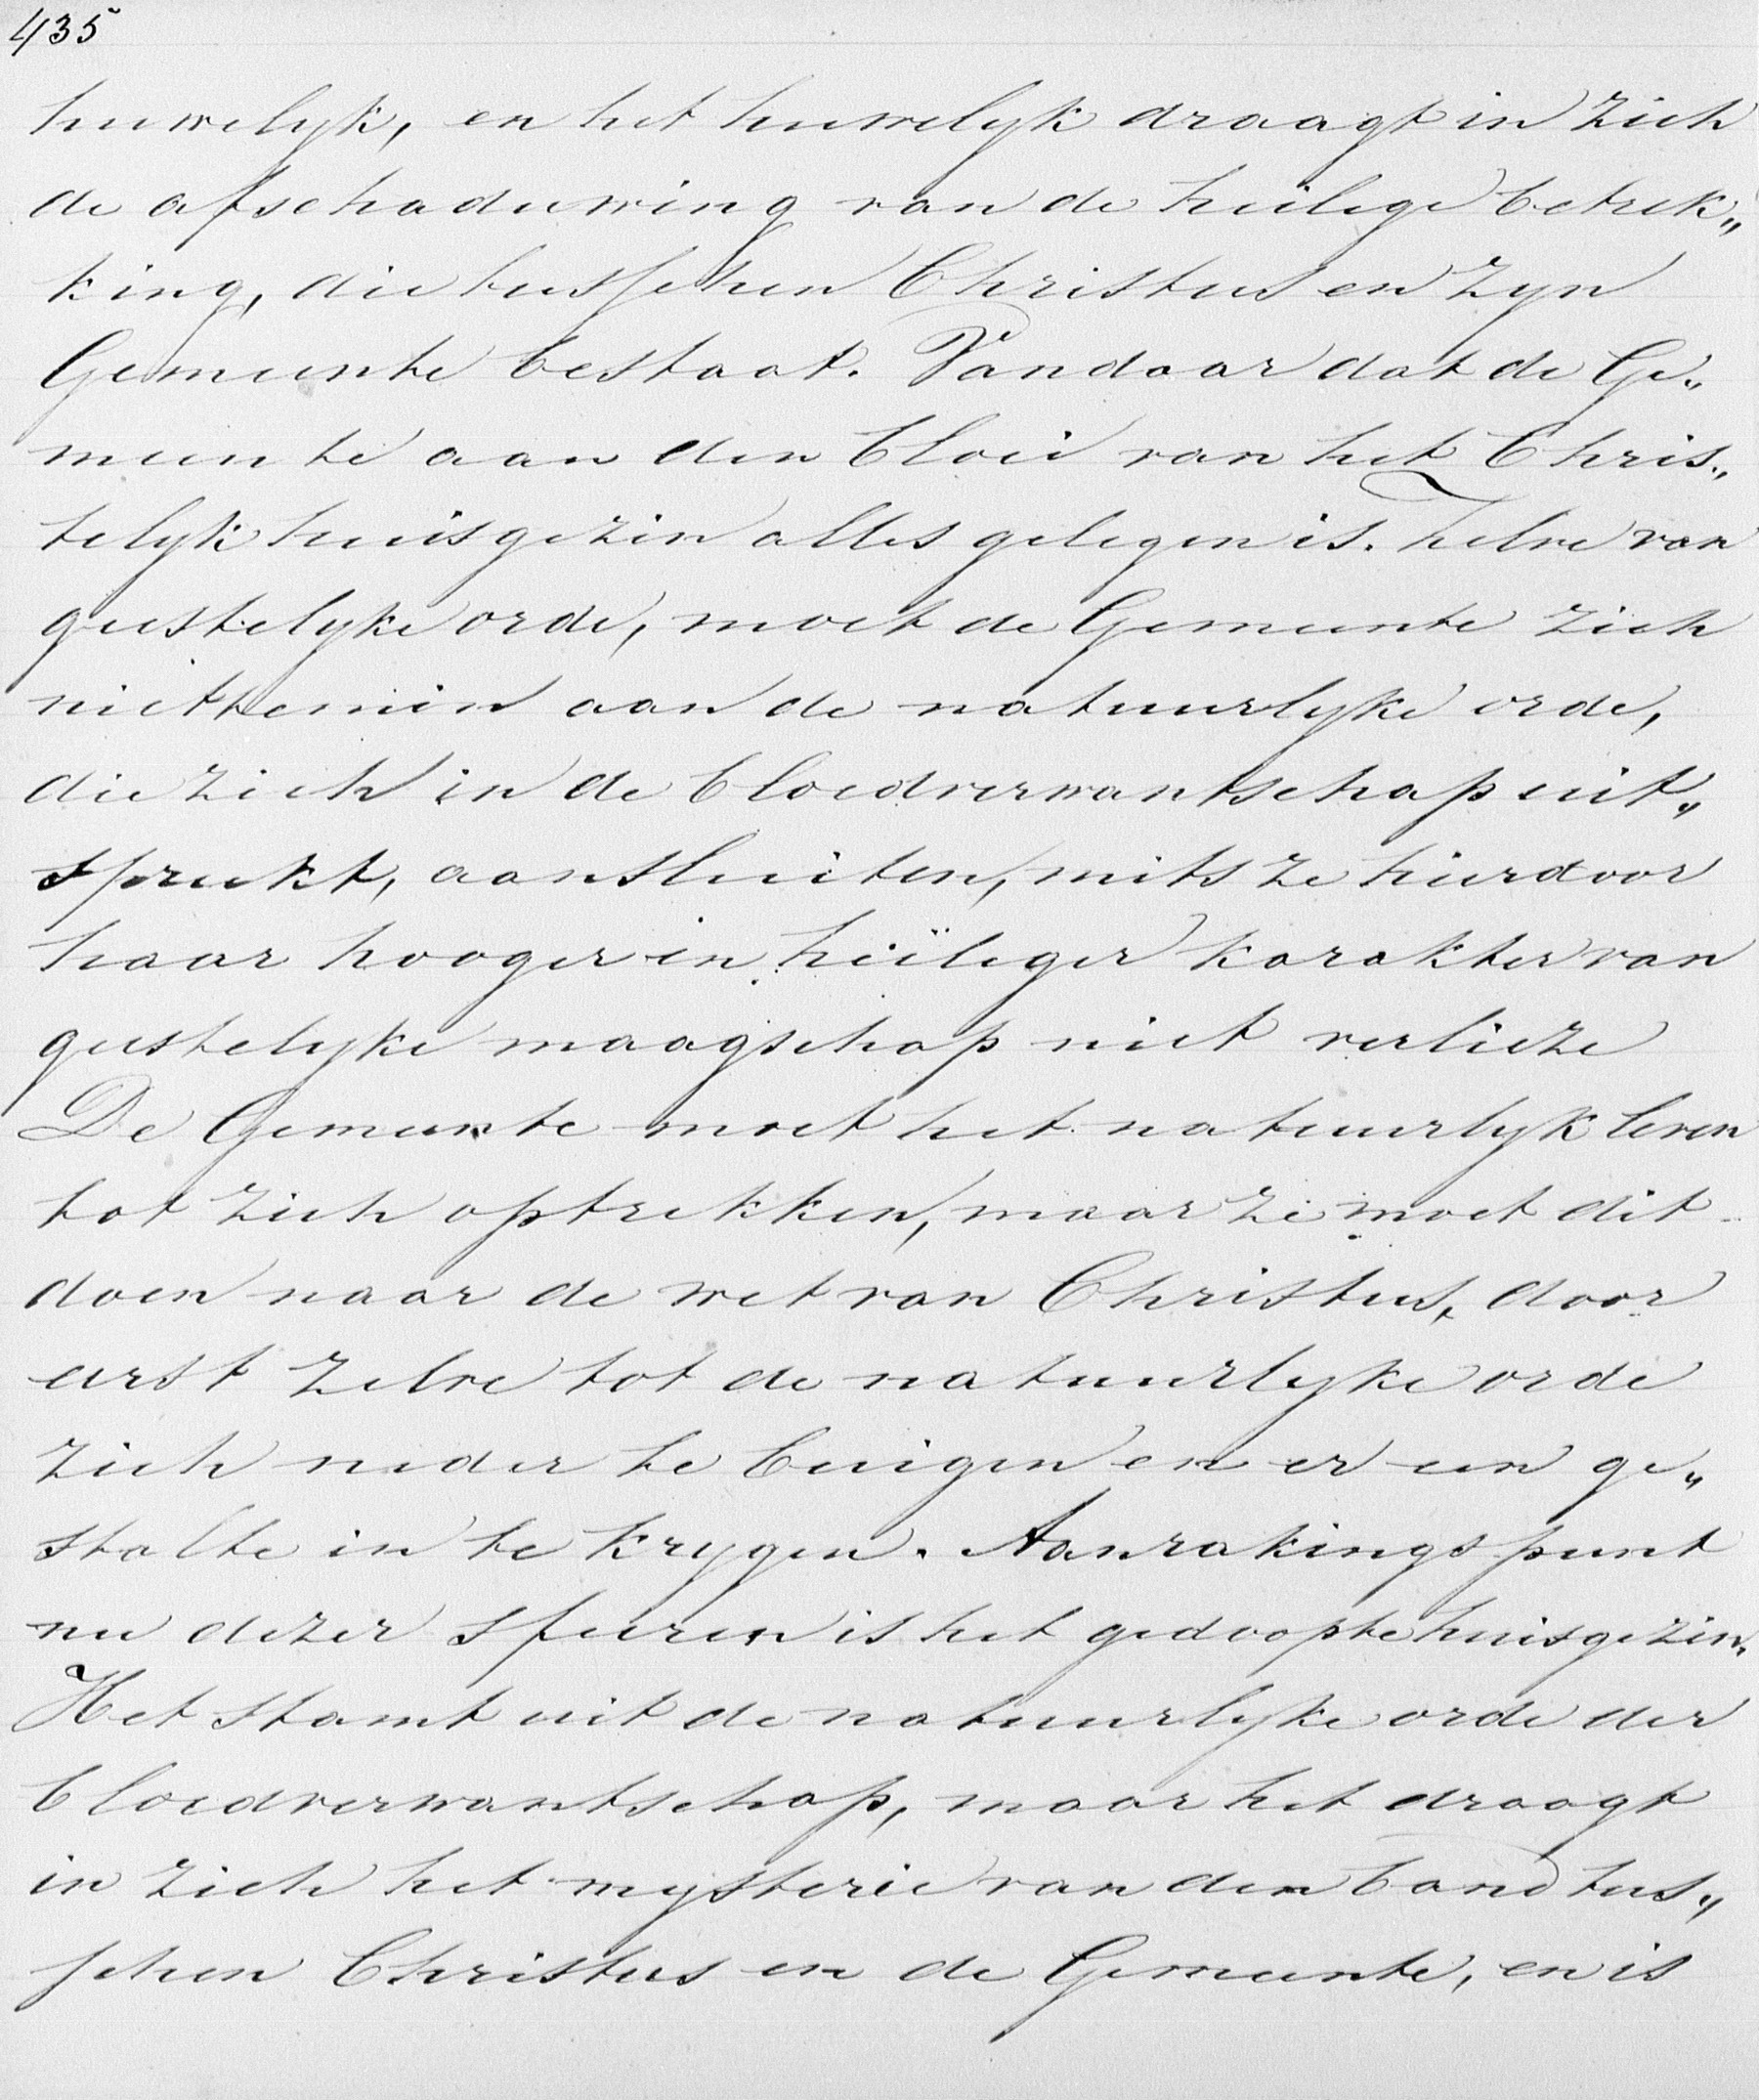 435
huwelyk, en het huwelyk draagt in zich
de afschaduwing van de heilige betrek„
king, die tusschen Christus en zyn
Gemeente bestaat. Vandaar dat de Ge„
meente aan den bloei van het Chris„
telyk huisgezin alles gelegen is. Zelve van
geestelyke orde, moet de Gemeente zich
niettemin aan de natuurlyke orde,
die zich in de bloedverwantschap uit„
spreekt, aansluiten, mits ze hierdoor
haar hooger en heiliger karakter van
geestelyke maagschap niet verlieze
De Gemeente moet het natuurlyk leven
tot zich optrekken, maar ze moet dit
doen naar de wet van Christus, door
eerst zelve tot de natuurlyke orde
zich neder te buigen en er een ge„
stalte in te krygen. Aanrakingspunt
nu dezer sfeeren is het gedoopte huisgezin.
Het stamt uit de natuurlyke orde der
bloedverwantschap, maar het draagt
in zich het mysterie van den band tus„
schen Christus en de Gemeente, en is